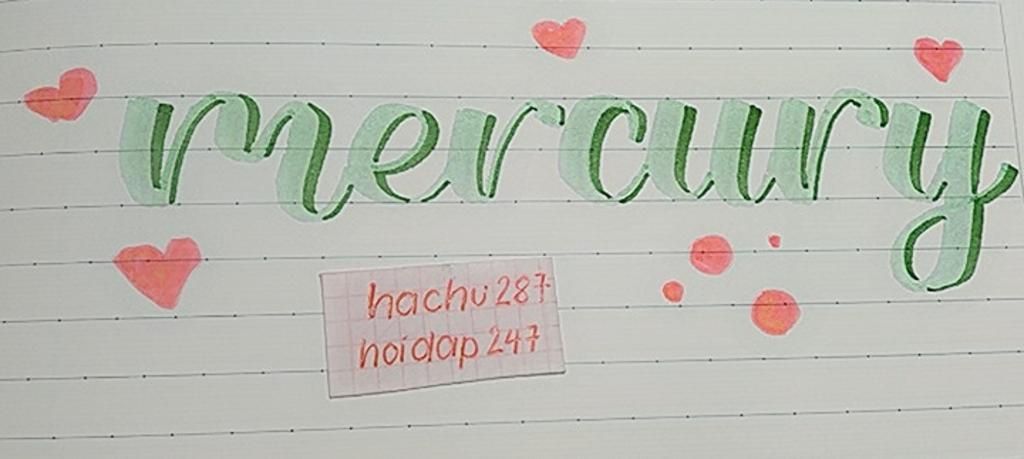 mercury
hachu287
hoidap247